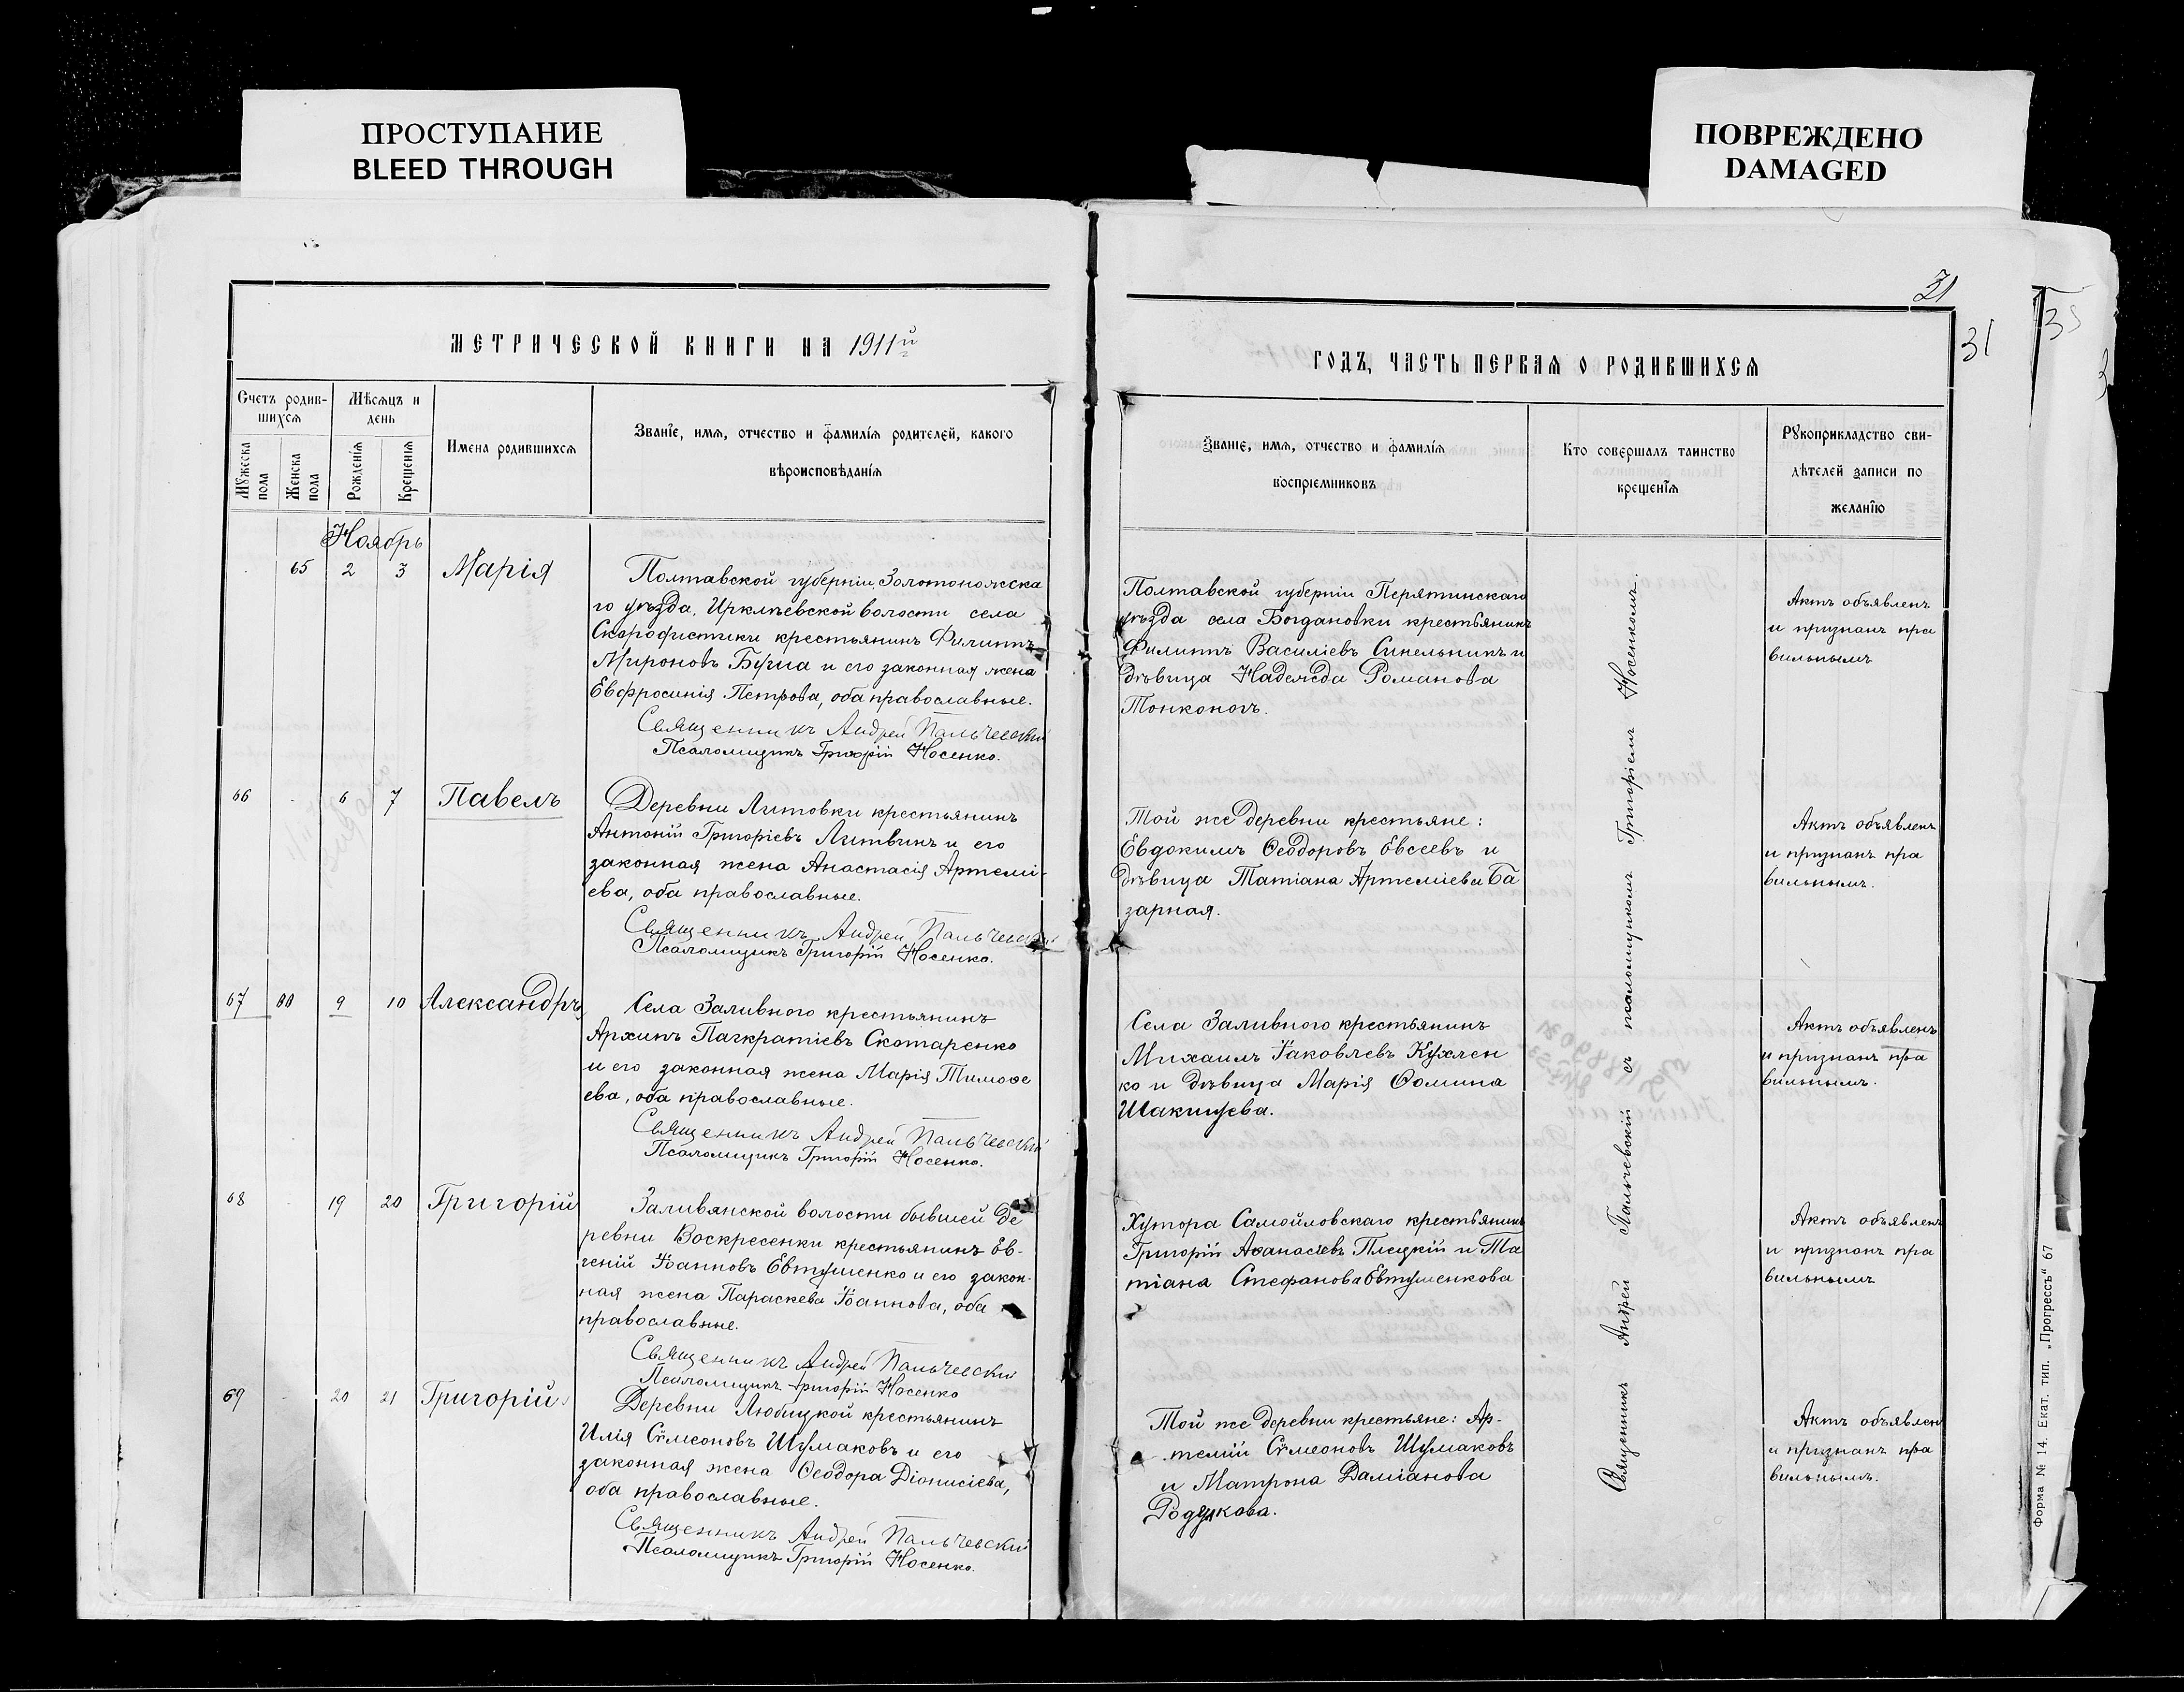 ПРОСТУПАНИЕ
BLEED THROUGH
ПОВРЕЖДЕНО
DAMAGED
31
31
35
3
МЕТРИЧЕСКОЙ КНИГИ НА 1911й
ГОДЪ, ЧАСТЬ ПЕРВАЯ О РОДИВШИХСЯ
Счетъ родив-
шихся
Мужеска пола
Женска пола
Мѣсяцъ и
день
Рожденія
Крещенія
Имена родившихся
Званіе, имя, отчество и фамилія родителей, какого
вѣроисповѣданія
Званіе, имя, отчество и фамилія
воспріемниковъ
Кто совершалъ таинство
крещенія
Рукоприкладство сви-
дѣтелей записи по
желанію
Ноябрь
65 2 3 Марія
Полтавской губерніи, Золотоношска
го уѣзда, Ирклѣевской волости села
Скородистики крестьянинъ Филиппъ
Мироновъ и его законная жена
Евфросинія Петрова, оба православные.
Священникъ Андрей Пальчевский
Псаломщикъ Григорій Носенко.
Полтавской губерніи Перятинскаго
уѣзда села Богдановки крестьянинъ
Филиппъ Василіевъ Синельникъ и
дѣвица Надежда Романова
Тонконогъ.
Актъ объявленъ
и признанъ пра
вильнымъ
66 6 7 Павелъ
Деревни Литовки крестьянинъ
Антоній Григоріевъ Литвинъ и его
законная жена Анастасія Артемі-
ева, оба православные.
Священникъ Андрей Пальчевский
Псаломщикъ Григорій Носенко.
Той же деревни крестьяне:
Евдокимъ Ѳеодоровъ Евсеевъ и
дѣвица Татіана Артеміева Ба
зарная.
Актъ объявленъ
и признанъ пра
вильнымъ.
67 9 10 Александръ
Села Заливного крестьянинъ
Архипъ Панкратіевъ Скотаренко
и его законная жена Марія Тимоѳе
ева, оба православные.
Священникъ Андрей Пальчевский
Псаломщикъ Григорій Носенко.
Села Заливного крестьянинъ
Михаилъ Іаковлевъ Кухлен
ко и дѣвица Марія Ѳомина
Шакинцева.
Актъ объявленъ
и признанъ пра
вильнымъ.
68 19 20 Григорій
Заливянской волости бывшей де
ревни Воскресенки крестьянинъ Ев-
геній Іоанновъ Евтушенко и его закон-
ная жена Параскева Іоаннова, оба
православные.
Священникъ Андрей Пальчевский
Псаломщикъ Григорій Носенко
Хутора Самойловскаго крестьянинъ
Григорій Аѳанасіевъ Плецкій и Та
тіана Стефанова Евтушенкова
Актъ объявленъ
и признанъ пра
вильнымъ
69 20 21 Григорій
Деревни Любицкой крестьянинъ
Илія Сѵмеоновъ Шумаковъ и его
законная жена Ѳеодора Діонисіева,
оба православные.
Священникъ Андрей Пальчевский
Псаломщикъ Григорій Носенко.
Той же деревни крестьяне: Ар-
темій Сѵмеоновъ Шумаковъ
и Матрона Даміанова
Актъ объявлен
и признанъ пра
вильнымъ.
Священникъ Андрей Пальчевскій съ псаломщикомъ Григоріемъ Носенкомъ.
Форма № 14. Екат. тип. „Прогрессъ“ 67